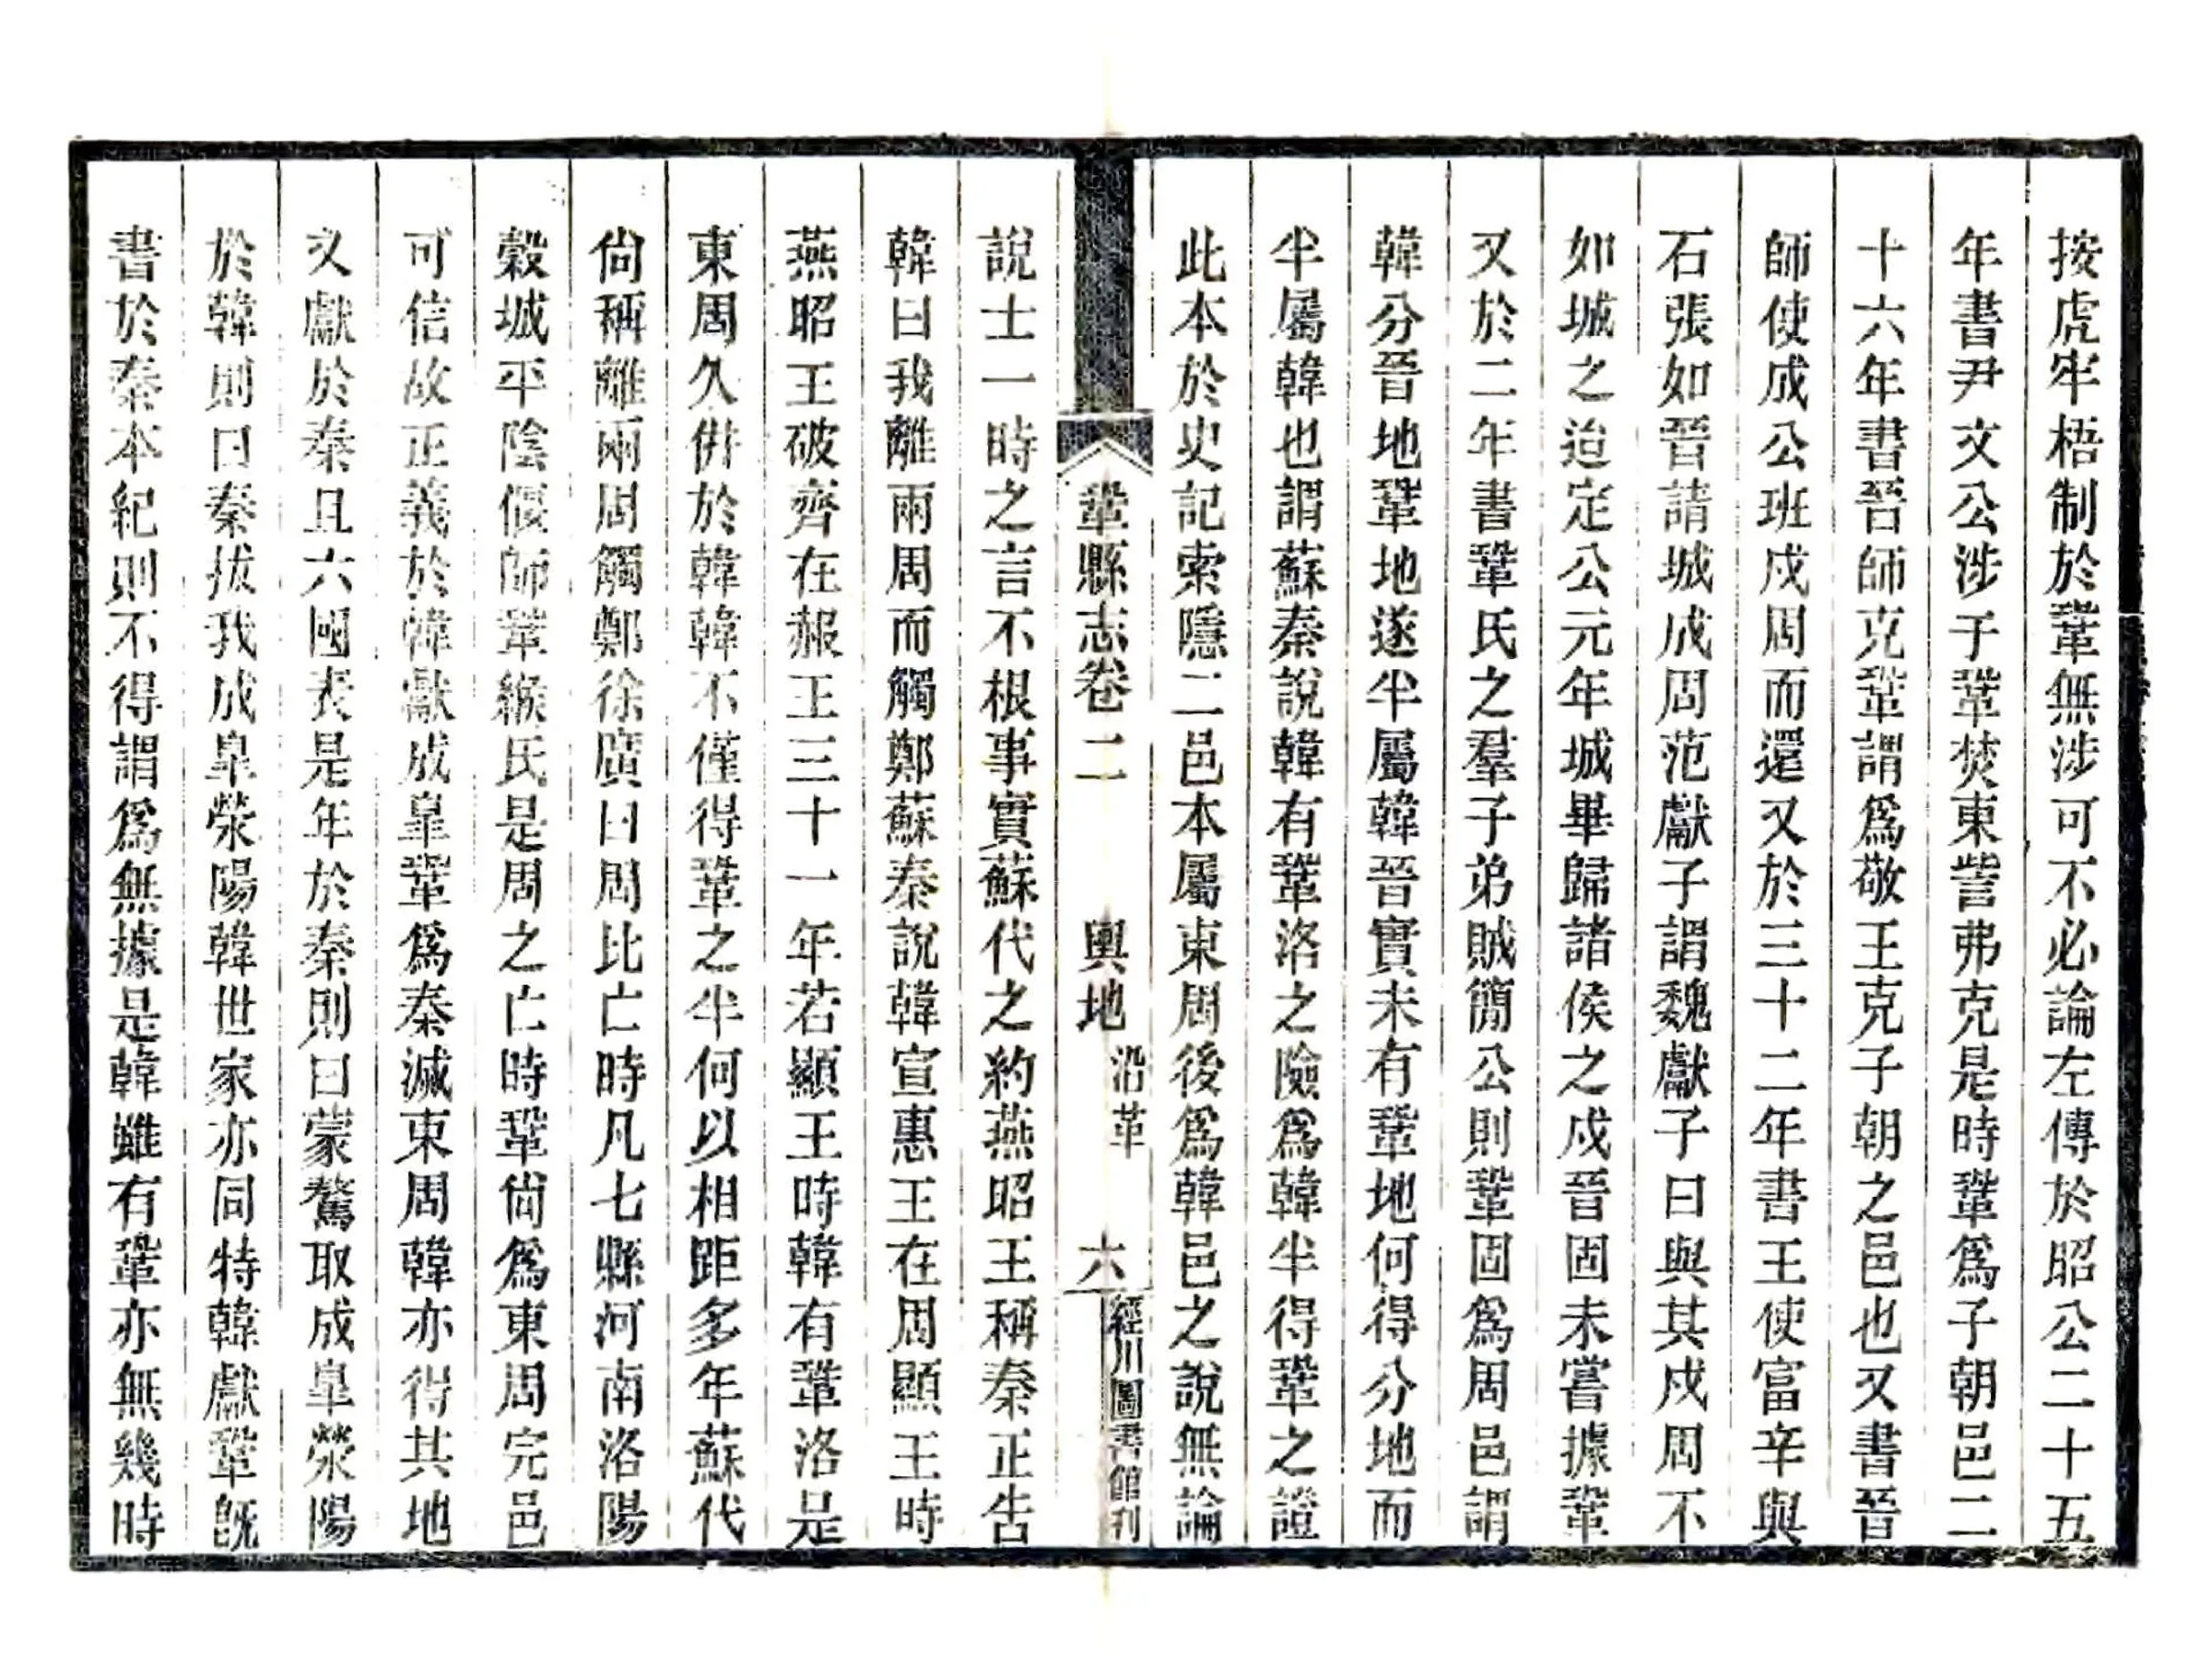 按虎牢梧制於鞏無涉可不必論左傳於昭公二十五
年書尹文公涉于鞏焚東訾弗克是時鞏爲子朝邑二
十六年書晉師克鞏謂爲敬王克子朝之邑也又書晉
師使成公班戍周而還又於三十二年書王使富辛與
石張如晉請城成周范獻子謂魏獻子曰與其戍周不
如城之迨定公元年城畢歸諸侯之戍晉固未嘗據鞏
又於二年書鞏氏之羣子弟賊簡公則鞏固爲周邑謂
韓分晉地鞏地遂半屬韓晉實未有鞏地何得分地而
半屬韓也謂蘇秦說韓有鞏洛之險爲韓半得鞏之證
此本於史記索隱二邑本屬東周後爲韓邑之說無論
鞏縣志卷二 輿地 沿革 六 經川圖書館刊
說士一時之言不根事實蘇代之約燕昭王稱秦正告
韓曰我離兩周而觸鄭蘇秦說韓宣惠王在周顯王時
燕昭王破齊在赧王三十一年若顯王時韓有鞏洛是
東周久併於韓韓不僅得鞏之半何以相距多年蘇代
尙稱離兩周觸鄭徐廣曰周比亡時凡七縣河南洛陽
穀城平陰偃師鞏緱氏是周之亡時鞏尙爲東周完邑
可信故正義於韓獻成皐鞏爲秦滅東周韓亦得其地
又獻於秦且六國表是年於秦則曰蒙驁取成皐滎陽
於韓則曰秦拔我成皐滎陽韓世家亦同特韓獻鞏旣
書於秦本紀則不得謂爲無據是韓雖有鞏亦無幾時